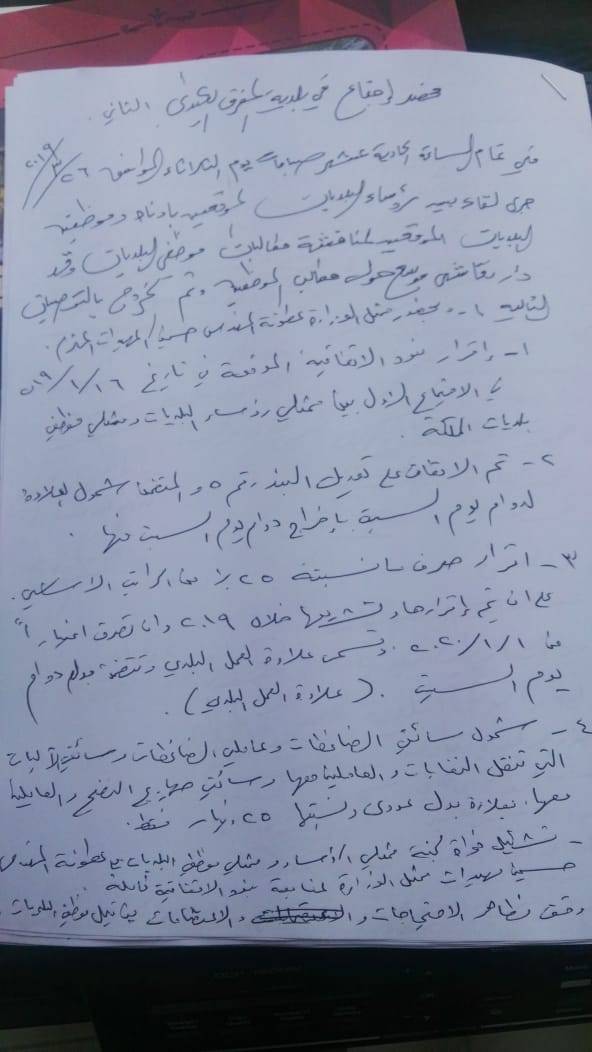 محضر إجتماع في بلدية المفرق الكبرى الثاني.
في تمام الساعة الحادية عشر صباحاً من يوم الثلاثاء الموافق ٢٦/٣/٢٠١٩
جرى لقاء بين رؤساء البلديات الموقعين بأدناه وموظفين
البلديات الموقعين لمناقشة مطالبات موظفي البلديات وقد
دار نقاش موسع حول مطالب الموظفين وتم الخروج بالتوصيات
التالية :- وبحضور ممثل الوزارة عطوفة المهندس حسين المهيدات المحترم.
١- إقرار بنود الاتفاقية الموقعة في تاريخ ١٦/١/٢٠١٩
في الاجتماع الاول بين ممثلي رؤساء البلديات وممثلي موظفي
بلديات المملكة.
٢- تم الاتفاق على تعديل البند رقم ٥ والمتضمن شمول العلاوة
لدوام يوم السبت بإخراج دوام يوم السبت منها.
٣- اقرار صرف ما نسبته ٢٥٪ من الراتب الاساسي.
على ان يتم إقرارها وتشريعها خلال ٢٠١٩ وان تصرف اعتباراً
من ١/١/٢٠٢٠. وتسمى علاوة العمل البلدي وتتضمن بدل دوام
يوم السبت. (علاوة العمل البلدي).
٤- شمول سائقي الضاغطات وعاملي الضاغطات وسائقي الآليات
التي تنقل النفايات والعاملين معها وسائقي صهاريج النضح والعاملين
معها. بعلاوة بدل عدوى وقيمتها ٢٥ دينار فقط.
- تشكيل نواة لجنة ممثلي الرؤساء وممثلي موظفي البلديات مع عطوفة المهندس
حسين مهيدات ممثل الوزارة لمتابعة بنود الاتفاقية كاملة.
وقف مظاهر الاحتجاجات و والاعتصامات من قبل موظفي البلديات